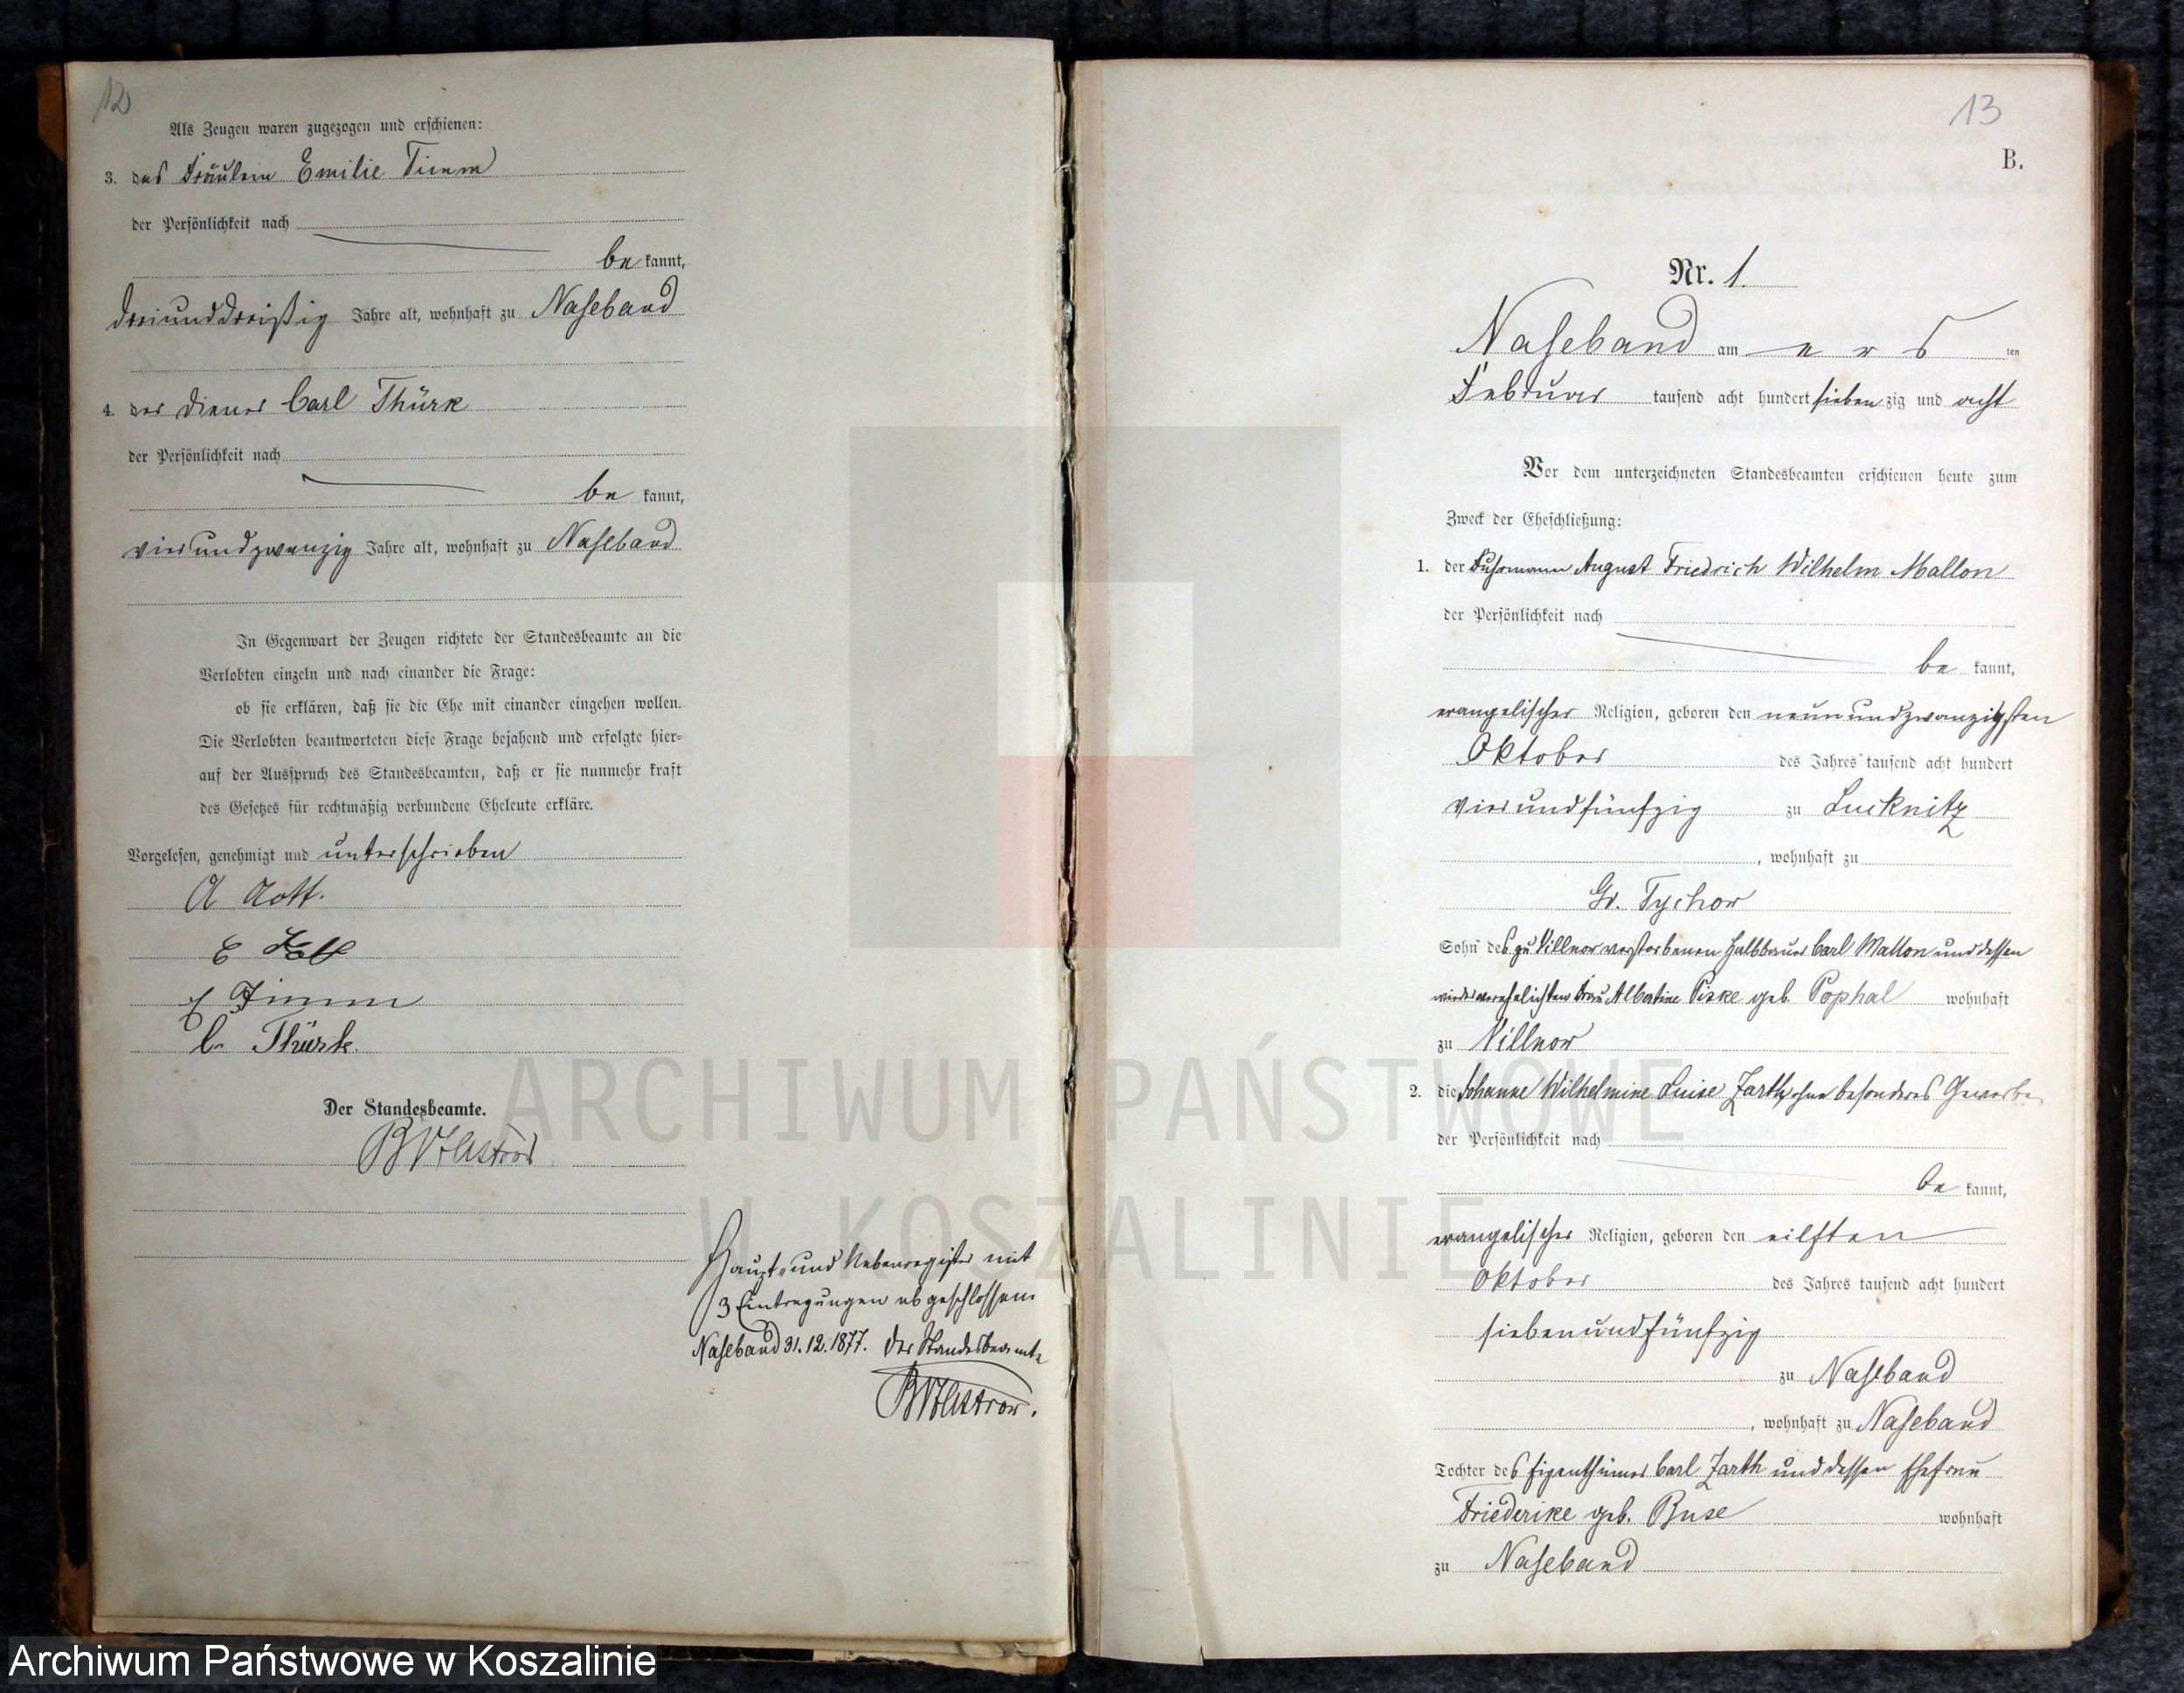 12
Als Zeugen waren zugezogen und erschienen:
3. das Fräulein Emilie Timm
der Persönlichkeit nach
be kannt,
dreiunddreißig Jahre alt, wohnhaft zu Naseband
4. der Diener Carl Thürk
der Persönlichkeit nach
be kannt,
vierundzwanzig Jahre alt, wohnhaft zu Naseband
In Gegenwart der Zeugen richtete der Standesbeamte an die
Verlobten einzeln und nach einander die Frage:
ob sie erklären, daß sie die Ehe mit einander eingehen wollen.
Die Verlobten beantworteten diese Frage bejahend und erfolgte hier-
auf der Ausspruch des Standesbeamten, daß er sie nunmehr kraft
des Gesetzes für rechtmäßig verbundene Eheleute erkläre.
Vorgelesen, genehmigt und unterschrieben
A
E
E Timm
C. Thürk.
Der Standesbeamte.
Haupt- und Nebenregister mit
3 Eintragungen abgeschlossen.
Naseband 31.12.1877. Der Standesbeamte
13
B.
Nr. 1.
Naseband am ers ten
Februar tausend acht hundert sieben zig und acht
Vor dem unterzeichneten Standesbeamten erschienen heute zum
Zweck der Eheschließung:
1. der Fuhrmann August Friedrich Wilhelm Mallon
der Persönlichkeit nach
be kannt,
evangelischer Religion, geboren den neunundzwanzigsten
Oktober des Jahres tausend acht hundert
vierundfünfzig zu Lucknitz
, wohnhaft zu
Gr. Tychow
Sohn des zu Villnow verstorbenen Halbbauer Carl Mallon und dessen
wiederverehelichten Frau Albertine Piske geb. Pophal wohnhaft
zu Villnow
2. die Johanne Wilhelmine Luise Zarth, ohne besonderes Gewerbe
der Persönlichkeit nach
be kannt,
evangelischer Religion, geboren den eilften
Oktober des Jahres tausend acht hundert
siebenundfünfzig
zu Naseband
, wohnhaft zu Naseband
Tochter des Eigenthümer Carl Zarth und dessen Ehefrau
Friederike geb. Buse wohnhaft
zu Naseband
ARCHIWUM PAŃSTWOWE
W KOSZALINIE
Archiwum Państwowe w Koszalinie